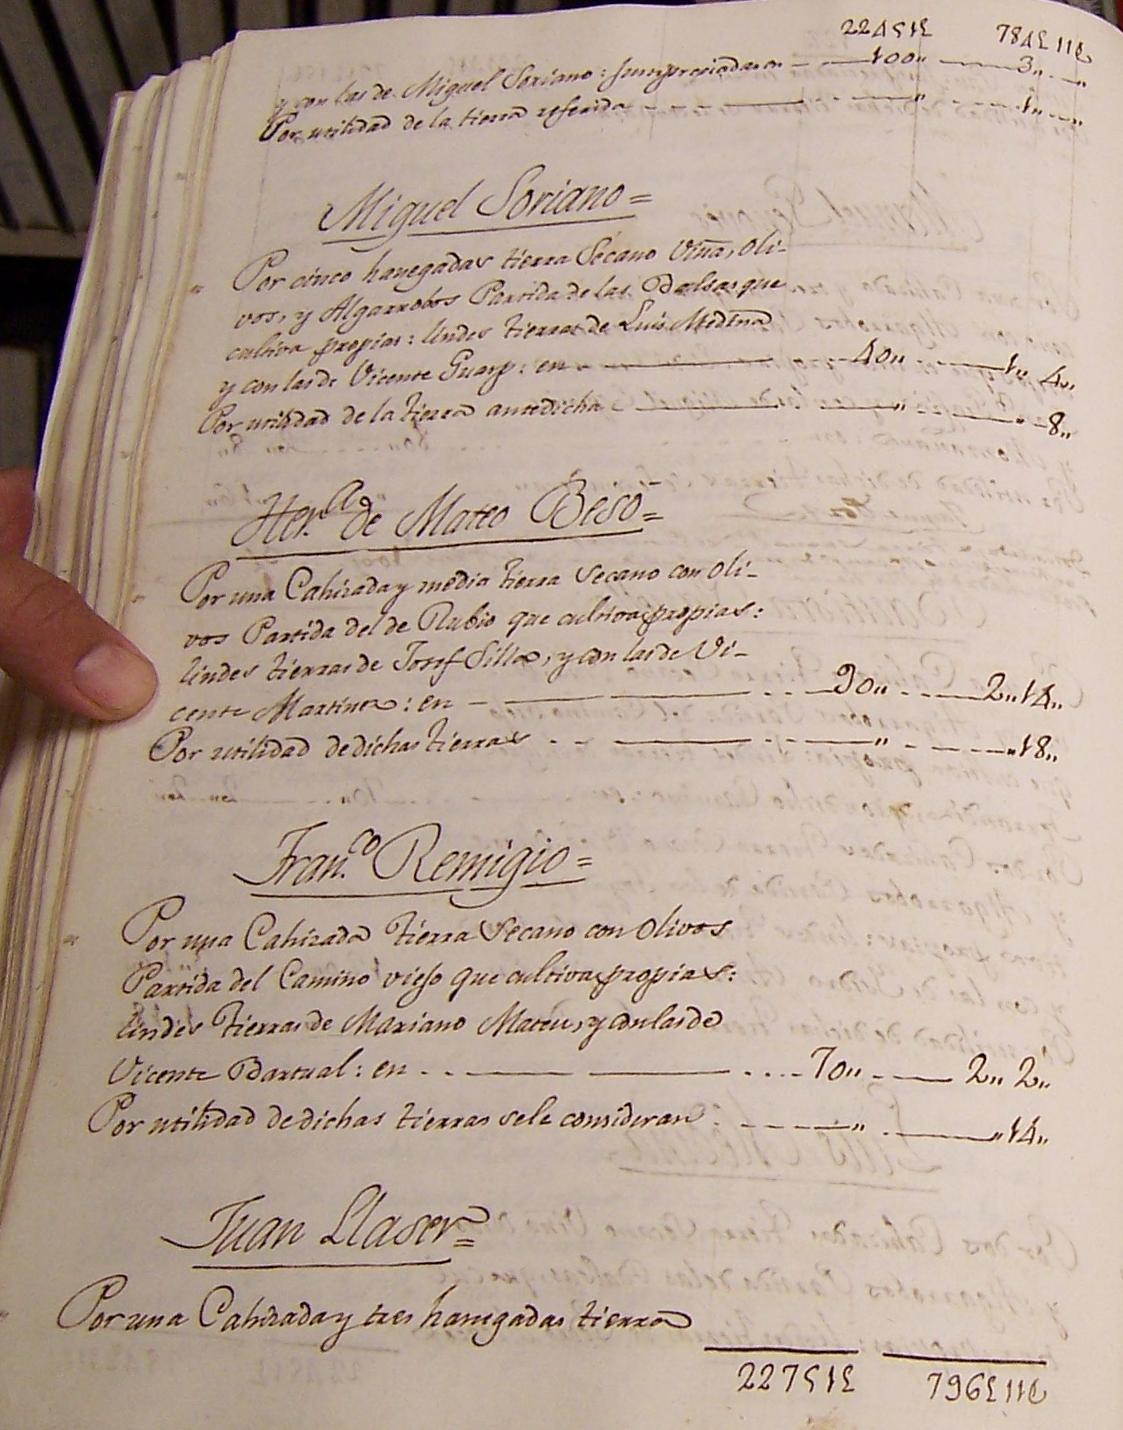 y con las de Miguel Soriano:
Por utilidad de la tierra referida
100„ 3„ „
„ 1„ „
Miguel Soriano=
Por cinco hanegadas tierra Secano Viña, Oli-
vos, y Algarrobos Partida de las Balsas que
cultiva propias: lindes tierras de Luis Medina
y con las de Vicente Guasp: en 40„ 1„ 4„
Por utilidad de la tierra antedicha „ 8„
Her.a de Mateo Besó=
Por una Cahizada y media tierra Secano con Oli-
vos Partida del de Rubio que cultiva propias:
lindes tierras de Josef Silla, y con las de Vi-
cente Martinez: en 90„ 2„14„
Por utilidad de dichas tierras „ „18„
Fran.co Remigio=
Por una Cahizada tierra Secano con Olivos
Partida del Camino viejo que cultiva propias:
lindes tierras de Mariano Mateu, y con las de
Vicente Bartual: en 70„ 2„ 2„
Por utilidad de dichas tierras se le consideran „ „14„
Juan Llacer=
Por una Cahizada y tres hanegadas tierra